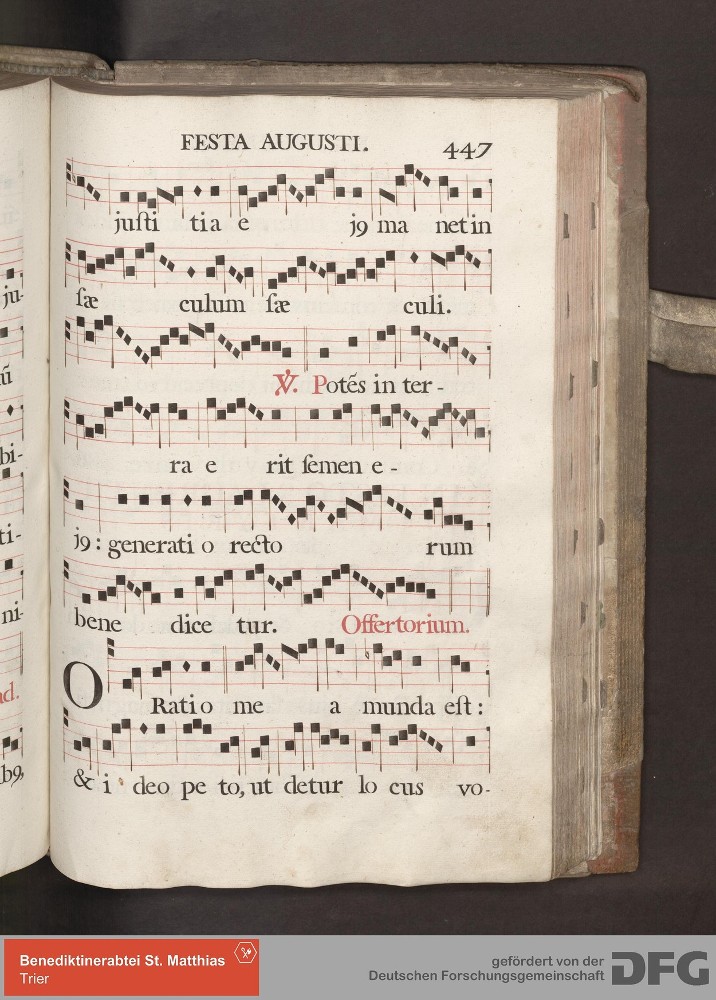 FESTA AUGUSTI. 447
justi tia e j9 ma net in
sæ culum sæ culi.
℣. Potẽs in ter-
ra e rit semen e-
j9: generati o recto rum
bene dice tur. Offertorium.
O Rati o me a munda est:
& i deo pe to, ut detur lo cus vo-
ju-
ũ
bi-
ti-
ni-
ad.
b9,
Benediktinerabtei St. Matthias
Trier
gefördert von der
Deutschen Forschungsgemeinschaft
DFG